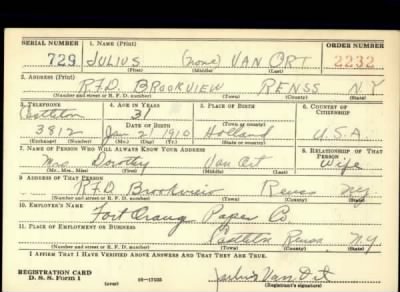 SERIAL NUMBER 1. NAME (Print) ORDER NUMBER
729 JULIUS (none) VAN ORT 2232
(First) (Middle) (Last)
2. ADDRESS (Print)
R.F.D. BROOKVIEW RENSS N.Y
(Number and street or R. F. D. number) (Town) (County) (State)
3. TELEPHONE 4. AGE IN YEARS 5. PLACE OF BIRTH 6. COUNTRY OF CITIZENSHIP
Castleton 31
DATE OF BIRTH Holland
3812 Jan 21 1910 U.S.A
(Exchange) (Number) (Mo.) (Day) (Yr.) (State or country)
7. NAME OF PERSON WHO WILL ALWAYS KNOW YOUR ADDRESS 8. RELATIONSHIP OF THAT PERSON
Mrs Dorothy Van Ort Wife
(Mr., Mrs., Miss) (First) (Middle) (Last)
9. ADDRESS OF THAT PERSON
R.F.D Brookview Renss NY
(Number and street or R. F. D. number) (Town) (County) (State)
10. EMPLOYER'S NAME
Fort Orange Paper Co
11. PLACE OF EMPLOYMENT OR BUSINESS
Castleton Renss N.Y
(Number and street or R. F. D. number) (Town) (County) (State)
I AFFIRM THAT I HAVE VERIFIED ABOVE ANSWERS AND THAT THEY ARE TRUE.
REGISTRATION CARD
D. S. S. Form 1 (over) 16—17105 Julius Van Ort
(Registrant's signature)